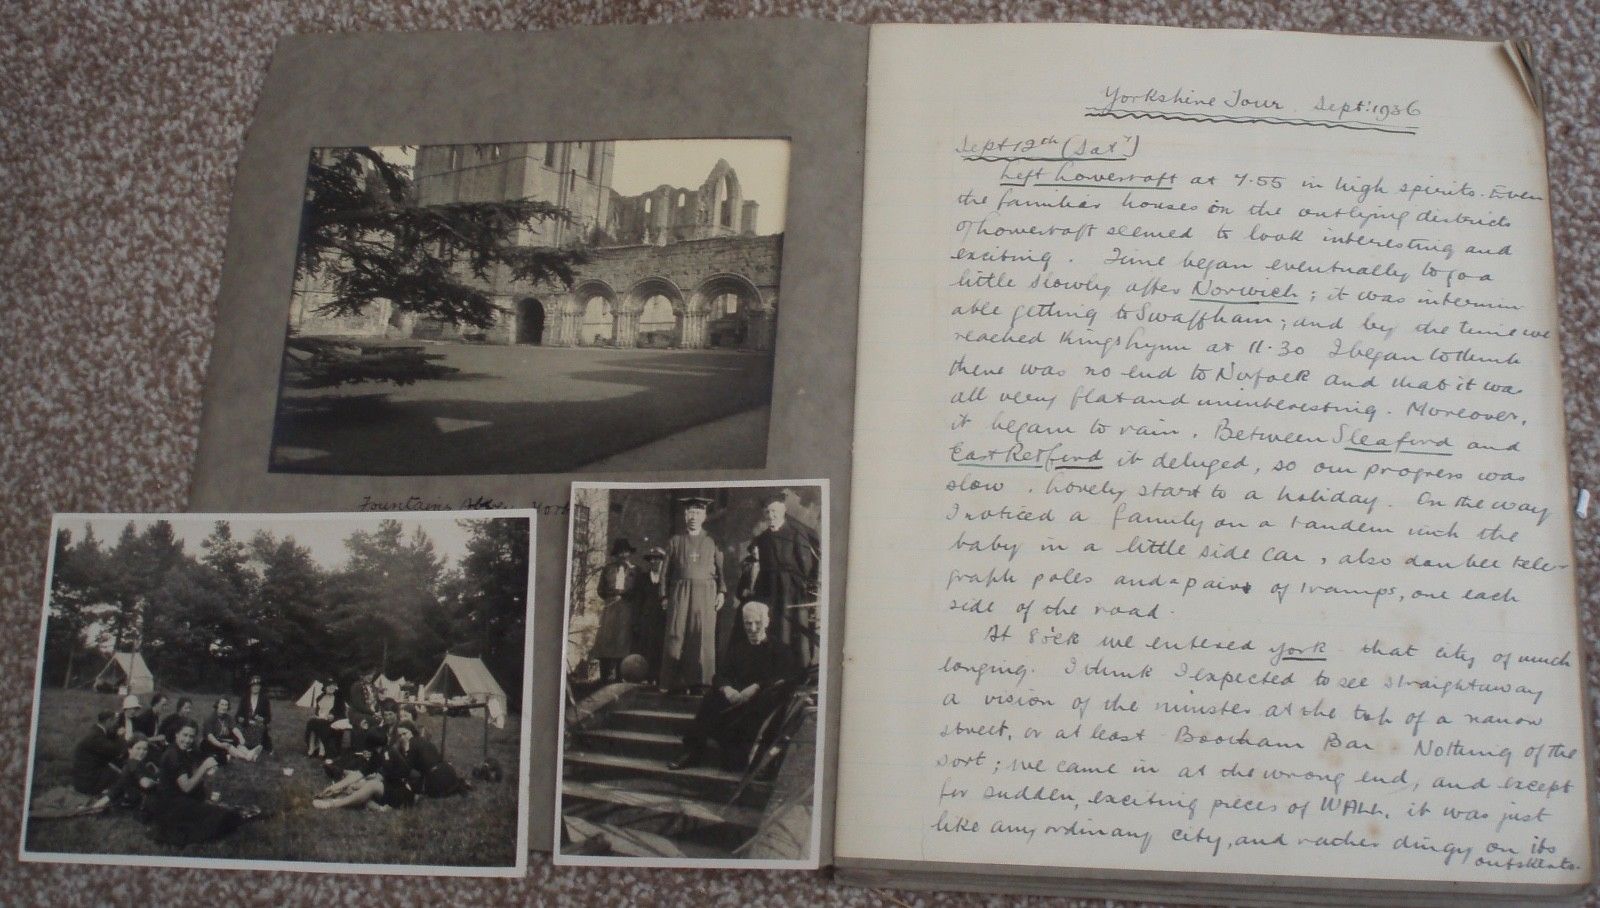 Fountains Abbey York
Yorkshire Tour. Sept: 1936
Sept 12th (Saty)
Left Lowestoft at 7.55 in high spirits. Even
the familiar houses in the outlying districts
of Lowestoft seemed to look interesting and
exciting. Time began eventually to go a
little slowly after Norwich; it was intermin
able getting to Swaffham; and by the time we
reached Kings Lynn at 11.30 I began to think
there was no end to Norfolk and that it was
all very flat and uninteresting. Moreover,
it began to rain. Between Sleaford and
East Retford it deluged, so our progress was
slow. Lovely start to a holiday. On the way
I noticed a family on a tandem with the
baby in a little side car, also double tele-
graph poles and a pair of tramps, one each
side of the road.
At 5 o'ck we entered York that city of much
longing. I think I expected to see straightaway
a vision of the minster at the top of a narrow
street, or at least Bootham Bar. Nothing of the
sort; we came in at the wrong end, and except
for sudden, exciting pieces of WALL, it was just
like any ordinary city, and rather dingy on its
outskirts.